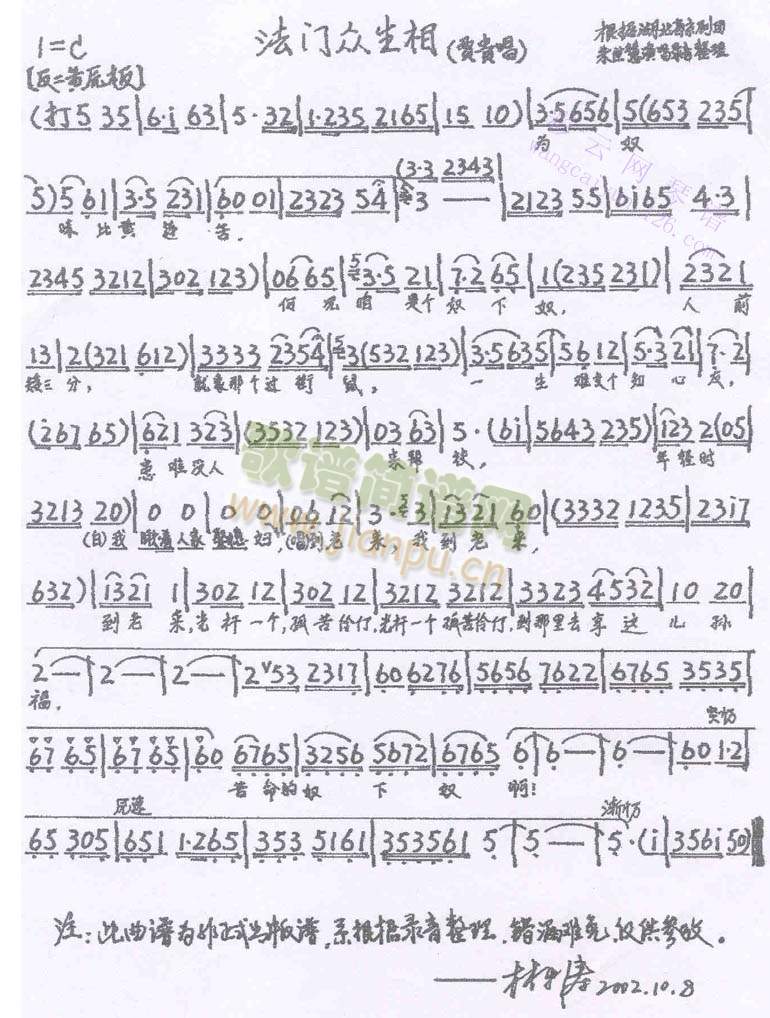 法门众生相(贾贵唱)
1=C
根据湖北省京剧团
朱世慧演唱录音整理
[反二黄原板]
(打5 35|6·i 63|5·32|1·235 2165|15 10)|3·5656|5(653 235|
为 奴
5)5 61|3·5 231|60 01|2323 54|3 — —|2123 55|6i65 4·3|
(3·3 2343|
味 比黄 连 苦,
2345 3212|302 123)|06 65|3·5 21|7·2 65|1(235 231)|2321
但 见 咱 是个 奴 下 奴, 人 前
13|2(321 612)|3333 2354|3(532 123)|3·5635|56 12|5·3 21|7·2
矮三 分, 就象那个过街 鼠, 一 生 难交个 知 心 友,
(2676 65)|621 323|(3532 123)|03 63|5·(6i|5643 235)|i23 2(05|
患 难没人 来帮 扶, 年轻时
3213 20)|0 0|0 0|06 12|3· 3|1321 60|(3332 1235|23i7
(白)我 人家 妇,(唱)到老 来,我到老 来,
632)|1321 1|302 12|302 12|3212 3212|3323 4532|10 20|
到老 来,光杆一个,孤苦伶仃,光杆一个孤苦伶仃,到那里去享这 儿 孙
2—|2—|2—|2 53 2317|60 6276|5656 7622|6765 3535|
福,
突忉
67 65|67 65|60 6765|3256 5672|6765 6|6—|6—|60 1·2|
苦命的奴 下 奴 啊!
尻速
渐忉
65 305|651 1·265|353 5161|353561 5|5—|5·(i|356i 50)|
注:此曲谱为非正式出版谱,系根据录音整理,错漏难免,仅供参改。
——林 涛 2002.10.8
歌谱简谱网
www.jianpu.cn